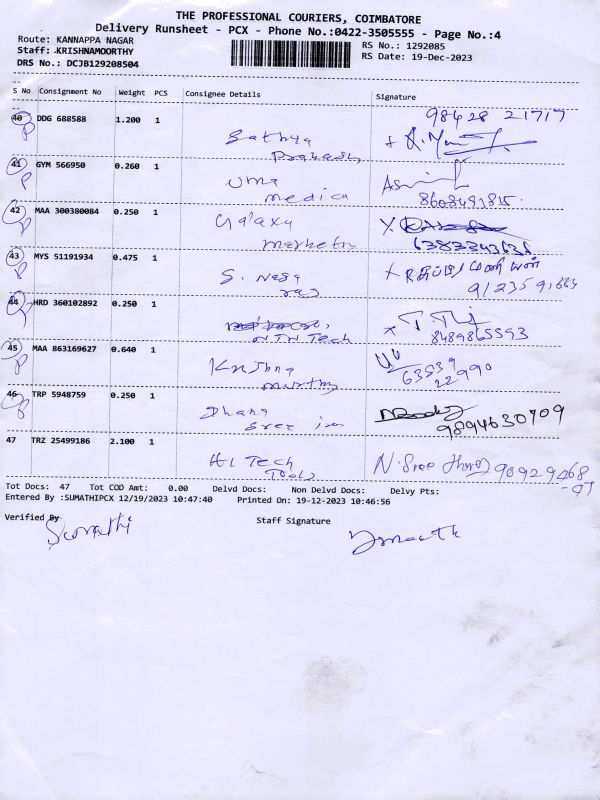 THE PROFESSIONAL COURIERS, COIMBATORE
Delivery Runsheet - PCX - Phone No.:0422-3505555 - Page No.:4
Route: KANNAPPA NAGAR
Staff: KRISHNAMOORTHY
DRS No.: DCJB129208504
RS No.: 1292085
RS Date: 19-Dec-2023
S No Consignment No Weight PCS Consignee Details Signature
98428 21717
40 DDG 688588 1.200 1 Sathya
Prakash
41 GYM 566950 0.260 1 Uma
Medica 8608491815
42 MAA 300380084 0.250 1 Galaxy
Marketin
43 MYS 51191934 0.475 1 S. Naga
raj
44 HRD 360102892 0.250 1
N.T.N. Tech 8489865593
45 MAA 863169627 0.640 1 Krishna
Murthy 63539
22990
46 TRP 5948759 0.250 1 Dhana
Sree 9894630709
47 TRZ 25499186 2.100 1 Hi Tech
Tools
Tot Docs: 47 Tot COD Amt: 0.00 Delvd Docs: Non Delvd Docs: Delvy Pts:
Entered By :SUMATHIPCX 12/19/2023 10:47:40 Printed On: 19-12-2023 10:46:56
Verified By Staff Signature
Sumathi